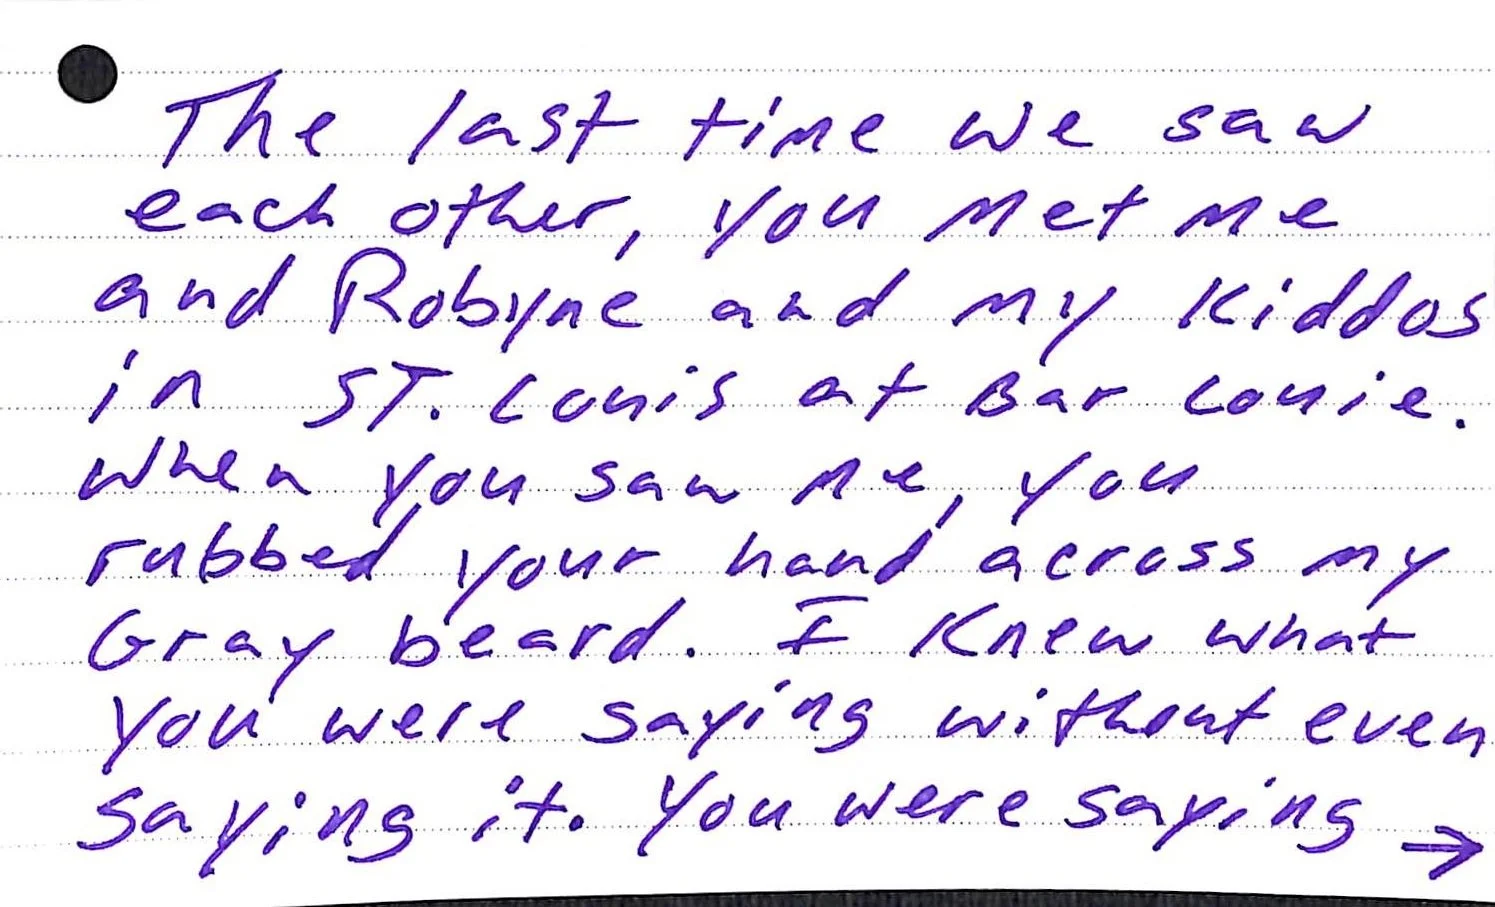 The last time we saw
each other, you met me
and Robyne and my kiddos
in ST. Louis at Bar Louie.
When you saw me, you
rubbed your hand across my
Gray beard. I knew what
you were saying without even
saying it. You were saying →